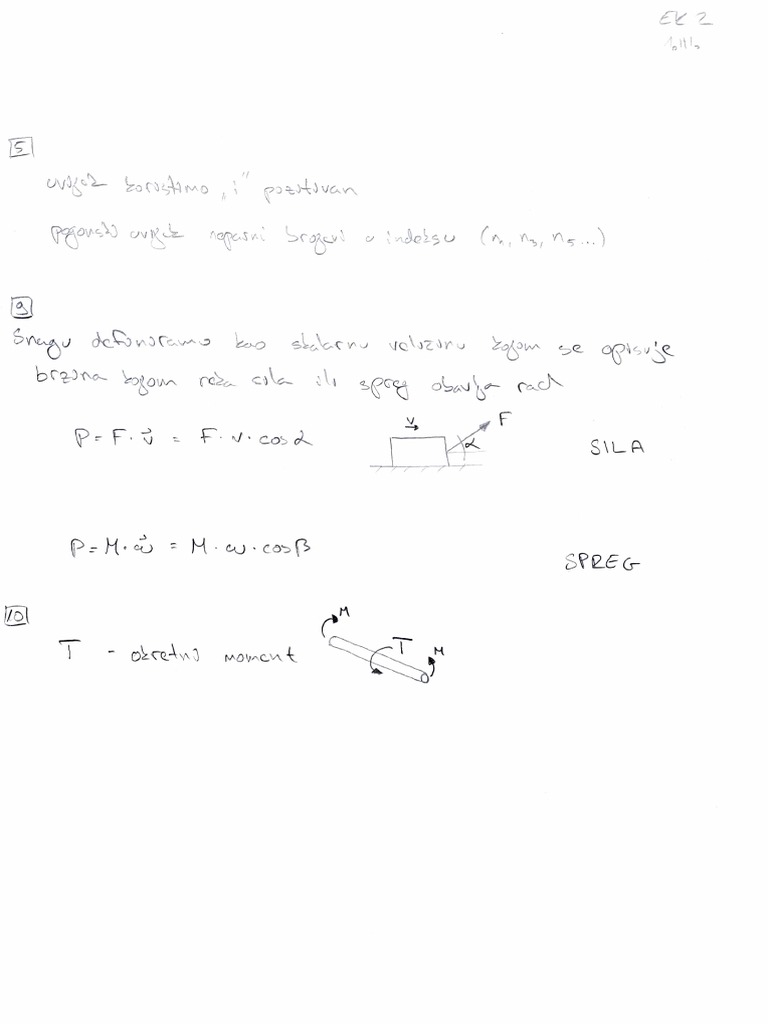 EK 2
5
uvijek koristimo "i" pozitivan
pogonski uvijek neparni brojevi u indeksu (n₁, n₃, n₅...)
9
Snagu definiramo kao skalarnu veličinu kojom se opisuje
brzina kojom neka sila ili spreg obavlja rad
P = F · v⃗ = F · v · cos α
v
F
α
SILA
P = M · ω⃗ = M · ω · cos β
SPREG
10
T - okretni moment
M
T
M